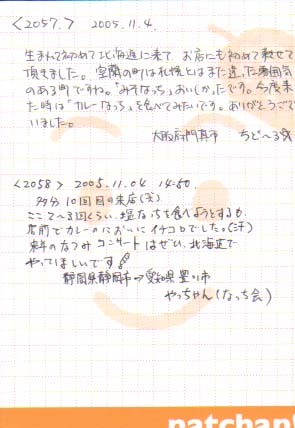 <2057.> 2005.11.4.
生まれて初めて北海道に来て お店にも初めて寄せて
頂きました。室蘭の町は札幌とはまた違った雰囲気
のある町ですね。"みそなっち"おいしかったです。今度来
た時は"カレーなっち"を食べてみたいです。ありがとうござ
いました。
大阪府門真市 ちどへる
<2058> 2005.11.04 14:50
多分10回目の来店(笑)
ここ2~3回くらい、塩なっちを食べようとするも、
店前でカレーのにおいにイチコロでした。(汗)
来年のなつみコンサートはぜひ、北海道で
やってほしいです
静岡県静岡市→愛知県豊川市
やっちゃん(なっち会)
patchan